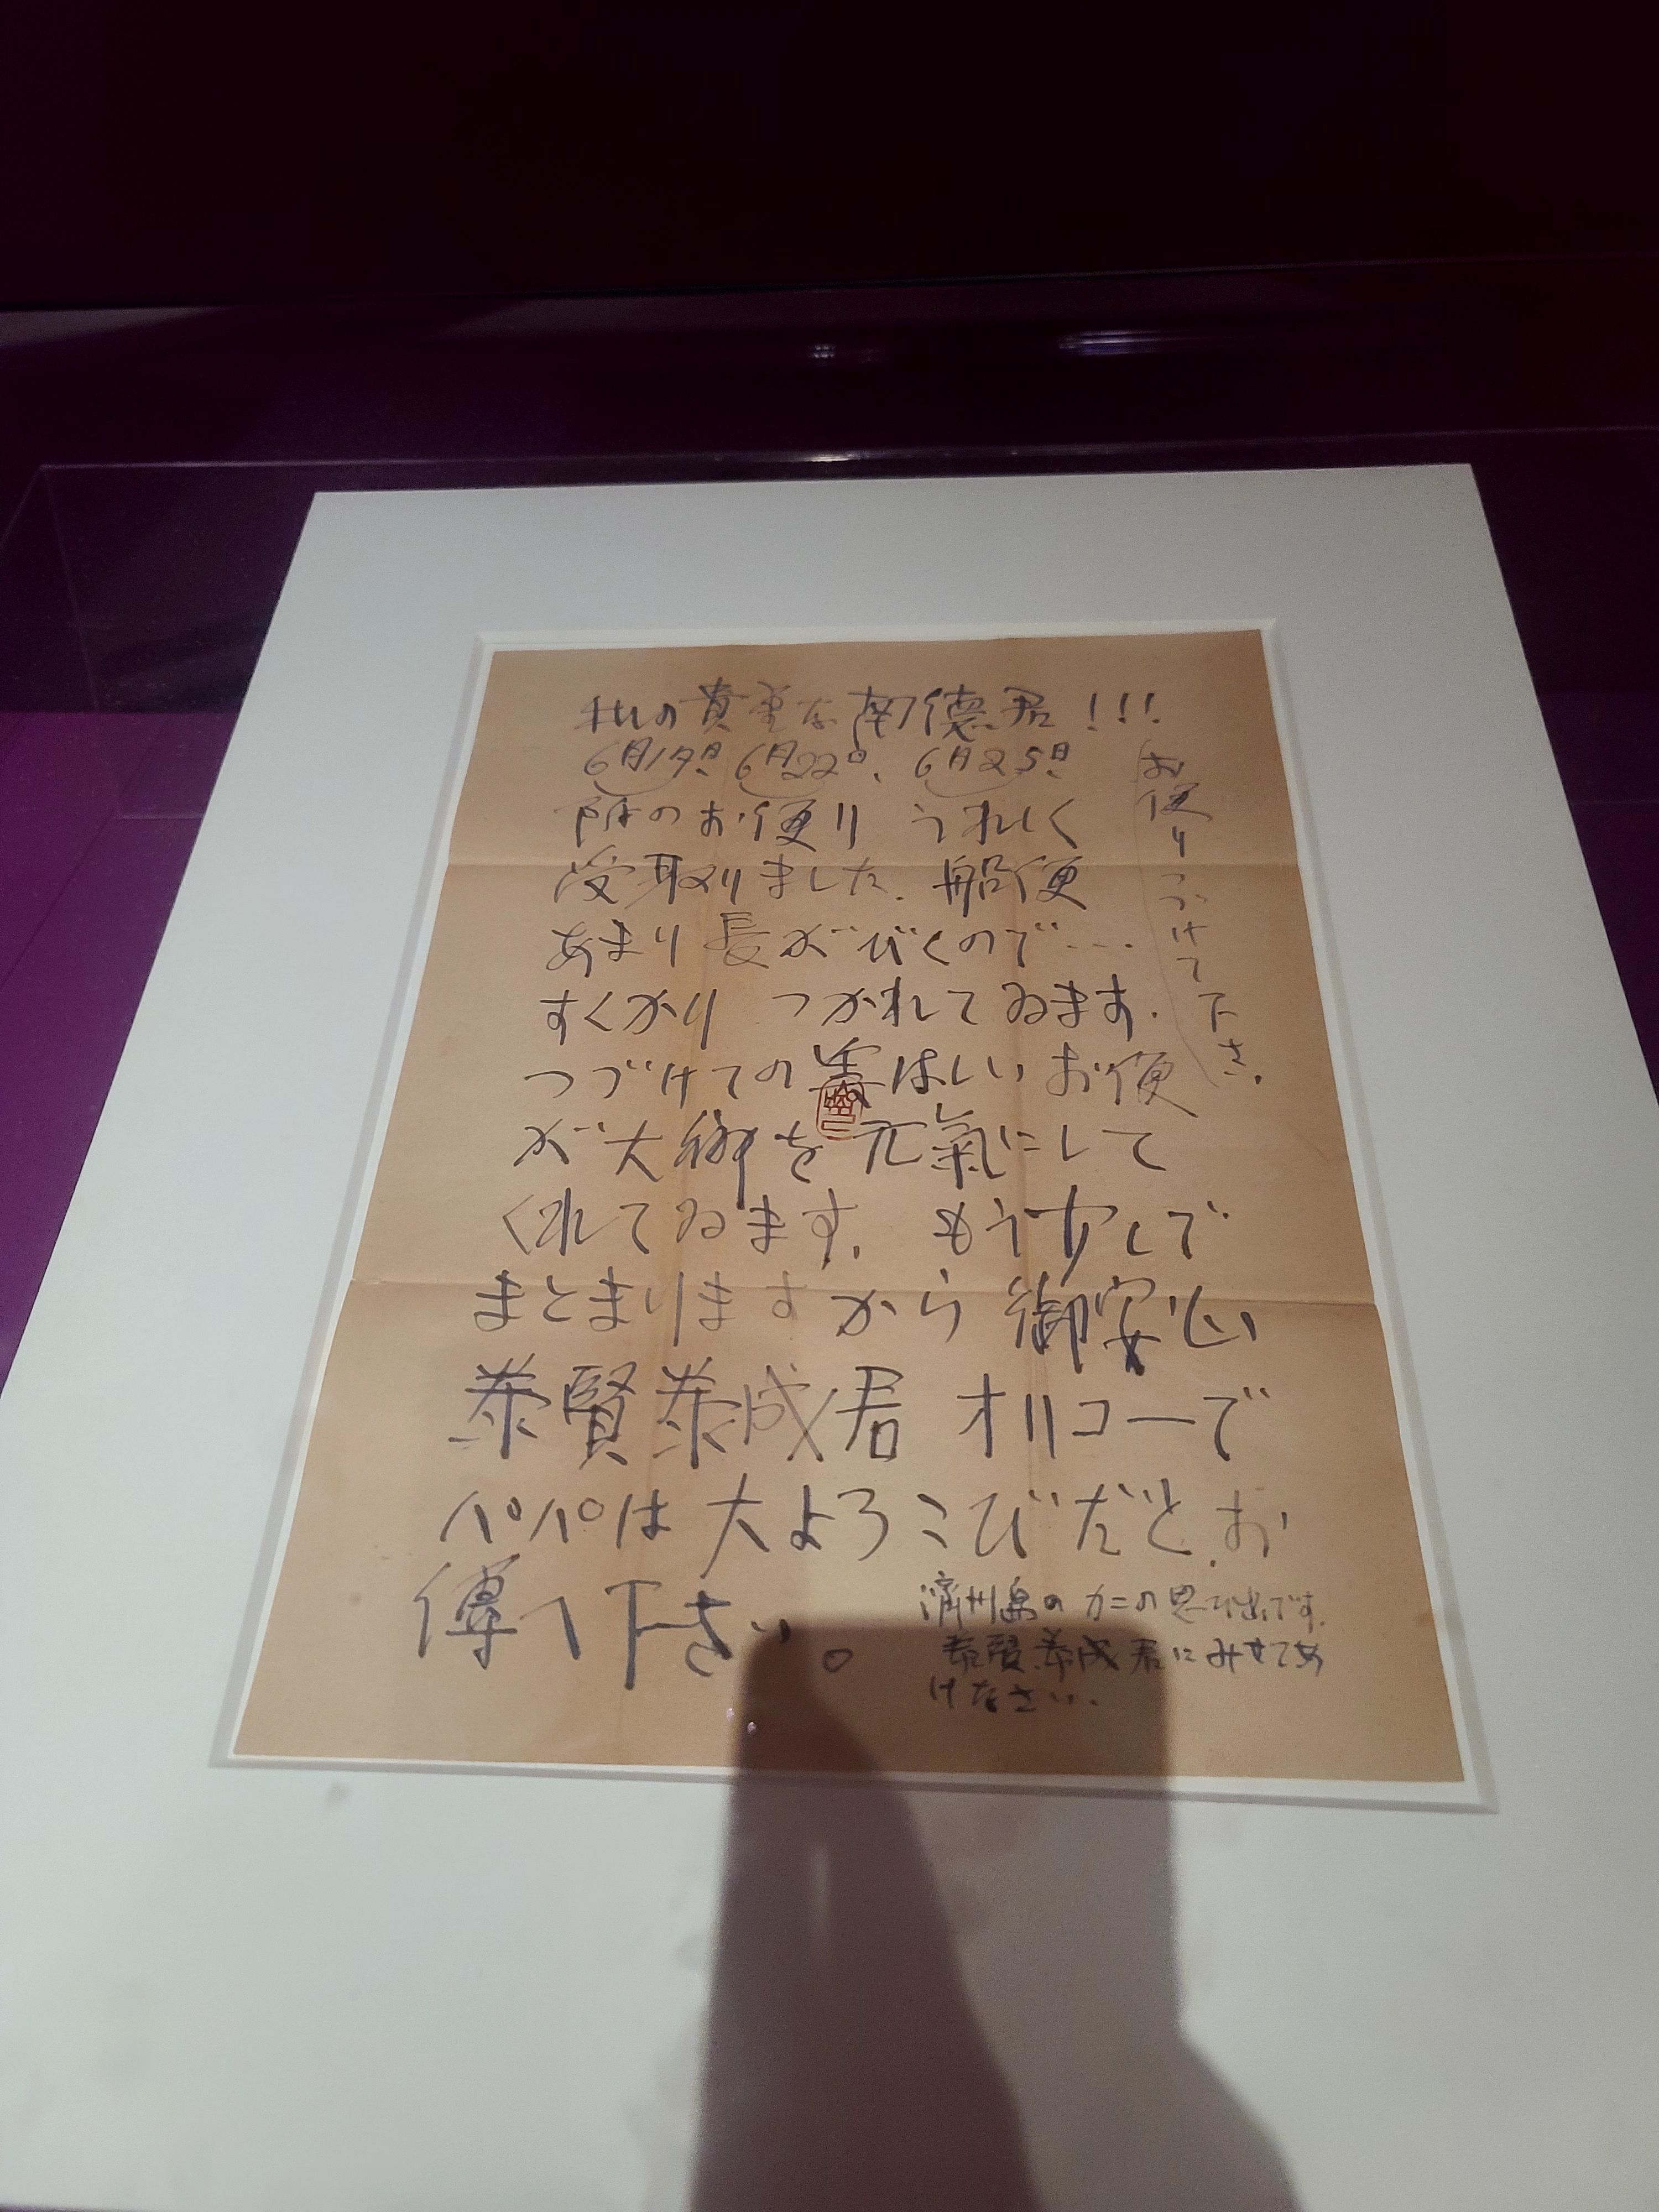 私の貴重な南德君!!!
6月19日 6月22日、6月25日
附のお便り うれしく
受取りました. 船便
あまり長がびくので…
すくかり つかれてゐます.
つづけての美はしいお便
が大鄕を元氣にして
くれてゐます. もう少しで
まとまりますから御安心
泰賢泰成君 オリコーで
パパは大よろこびだと.お
傳へ下さい。
お便りつづけて下さ.
濟州島のカニの思ひ出です.
泰賢泰成君にみせてあ
げなさい.